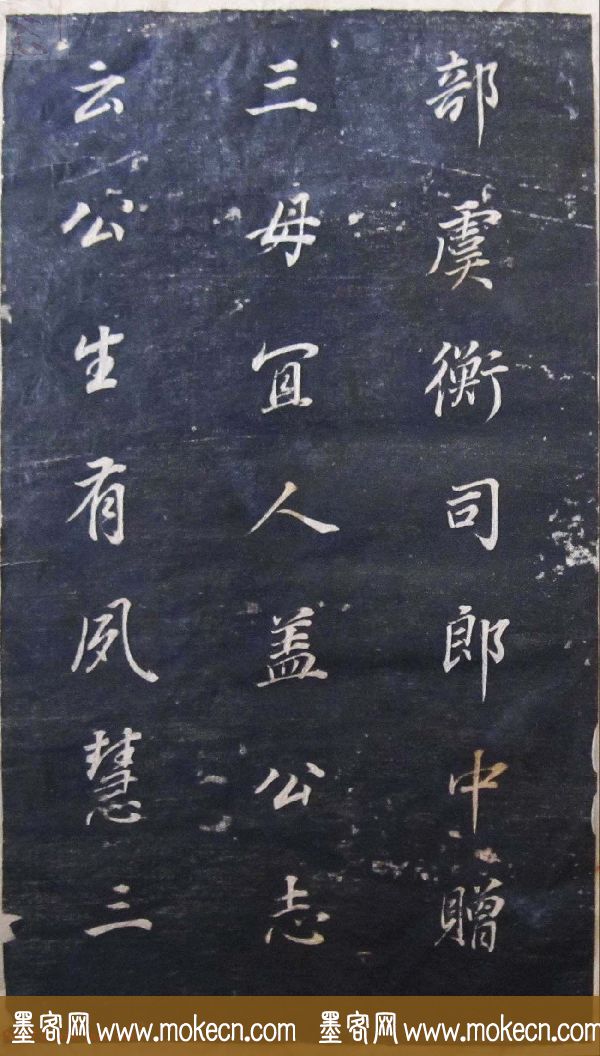 部虞衡司郎中赠
三母宜人盖公志
云公生有夙慧三
墨客网 www.mokecn.com 墨客网 www.mokecn.com